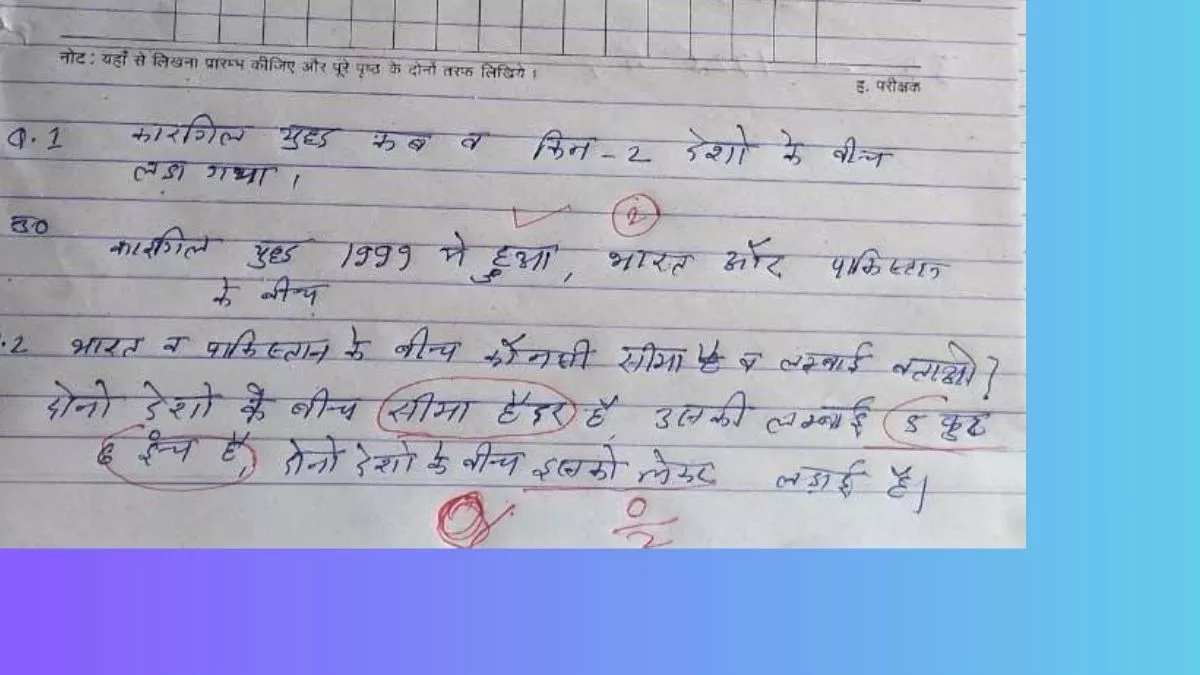 नोट : यहाँ से लिखना प्रारम्भ कीजिए और पूरे पृष्ठ के दोनों तरफ लिखिये।
ह. परीक्षक
Q.1 कारगिल युद्ध कब व किन-2 देशो के बीच
लडा गया ।
2
उ0
कारगिल युद्ध 1999 मे हुआ, भारत और पाकिस्तान
के बीच
.2 भारत व पाकिस्तान के बीच कौनसी सीमा है व लम्बाई बताओ?
दोनो देशो के बीच सीमा हैदर है, उसकी लम्बाई 5 फुट
6 इंच है, दोनो देशो के बीच इसको लेकर लड़ाई है।
0
2